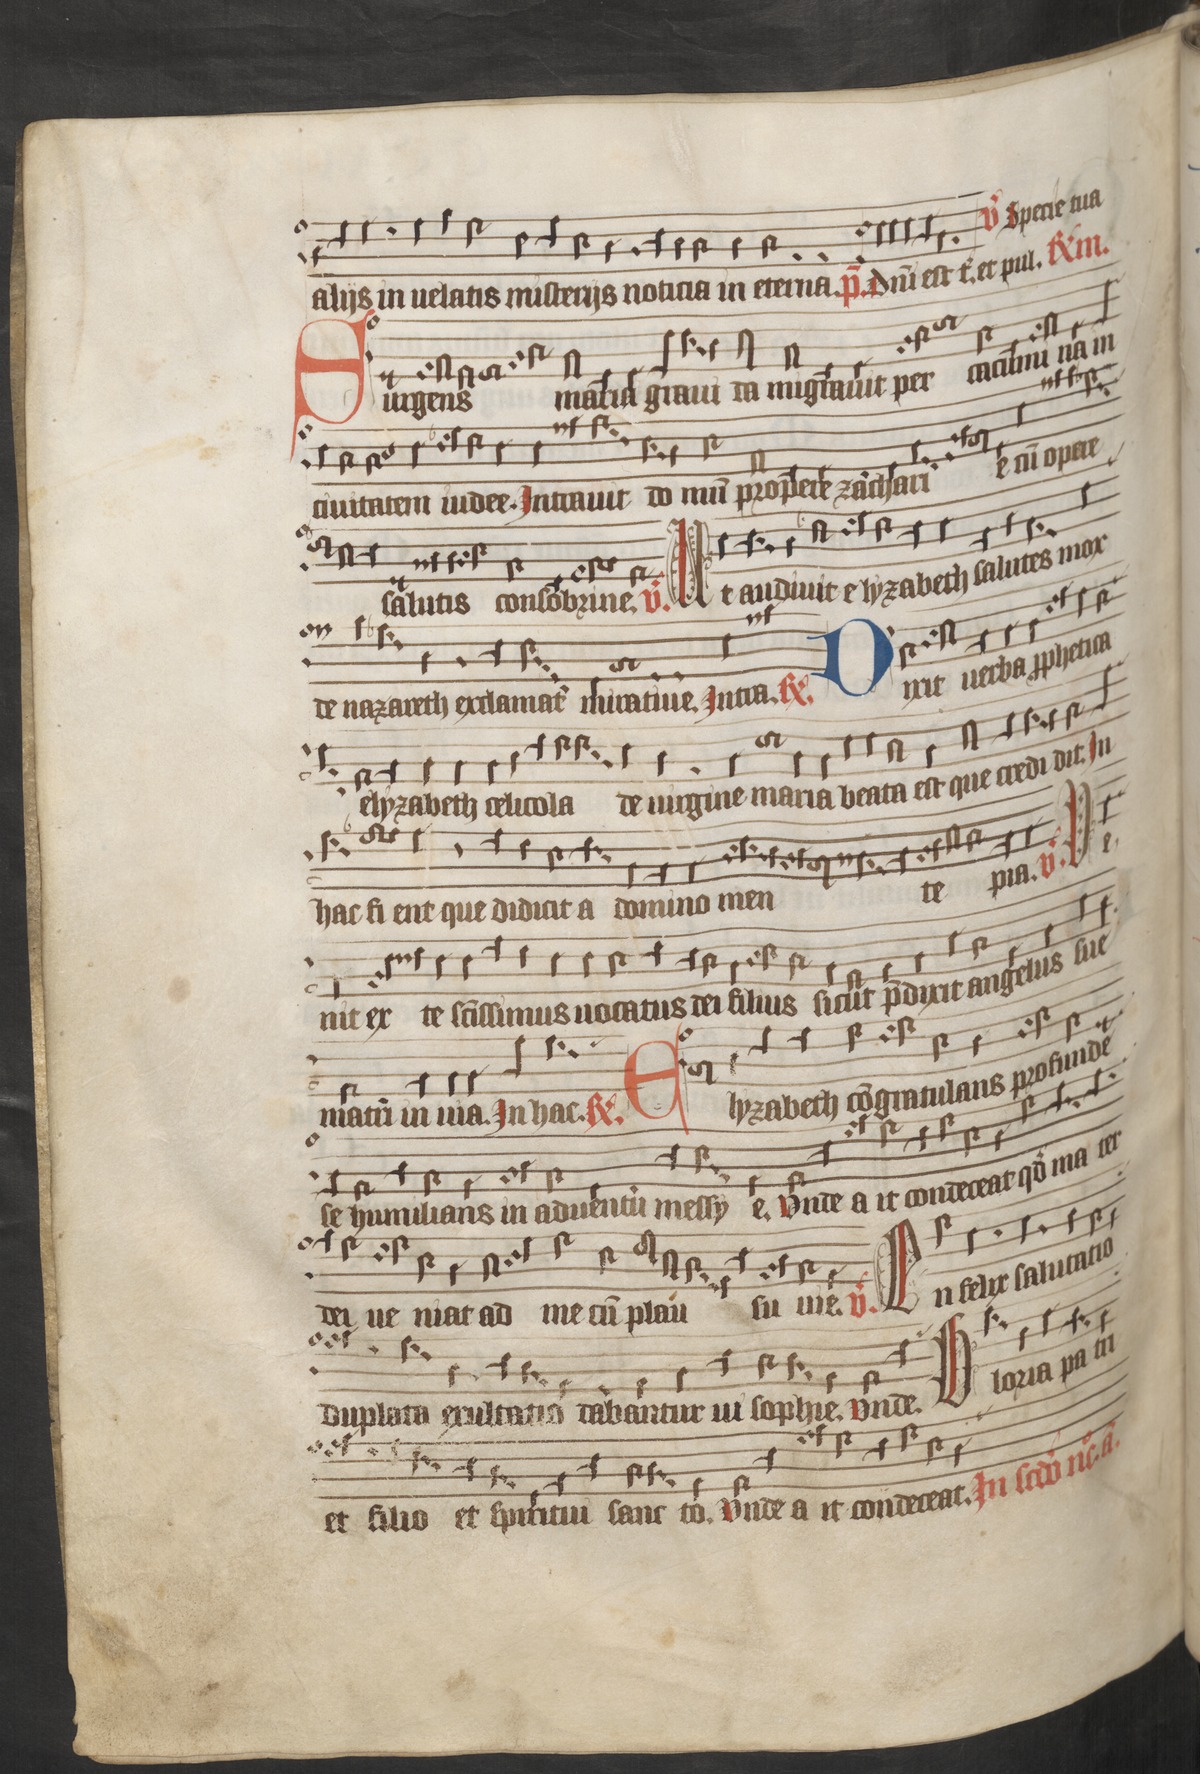 V̄ Specie tua
alijs in uelatis misterijs noticia in eterna. p̄. Dn̄i est t̄. et pul. Rm̄.
Surgens maria graui da migrauit per cacumi na in
ciuitatem iudee. Intrauit do mū propere zachari e cū opere
salutis consobrine. V̄. At audiuit e lyzabeth salutes mox
de nazareth exclamat miratiue. Intra. R̄. Dixit uerba pphetica
elyzabeth celicola de uirgine maria beata est que credi dit. In
hac fi ent que didicit a domino men te pia. V̄. Ve
nit ex te sc̄issimus uocatus dei filius sicut p̄dixit angelus sue
matri in uia. In hac. R̄. Elyzabeth cōgratulans profunde
se humilians in aduentū messy e. Vnde a it condeceat qd̄ ma ter
dei ue niat ad me cū plau su uie. V̄. En felix salutatio
duplata exultatio dabantur ui sophie. Vnde. Gloria pa tri
et filio et spiritui sanc to. Vnde a it condeceat. In scd̄o nc̄. a.